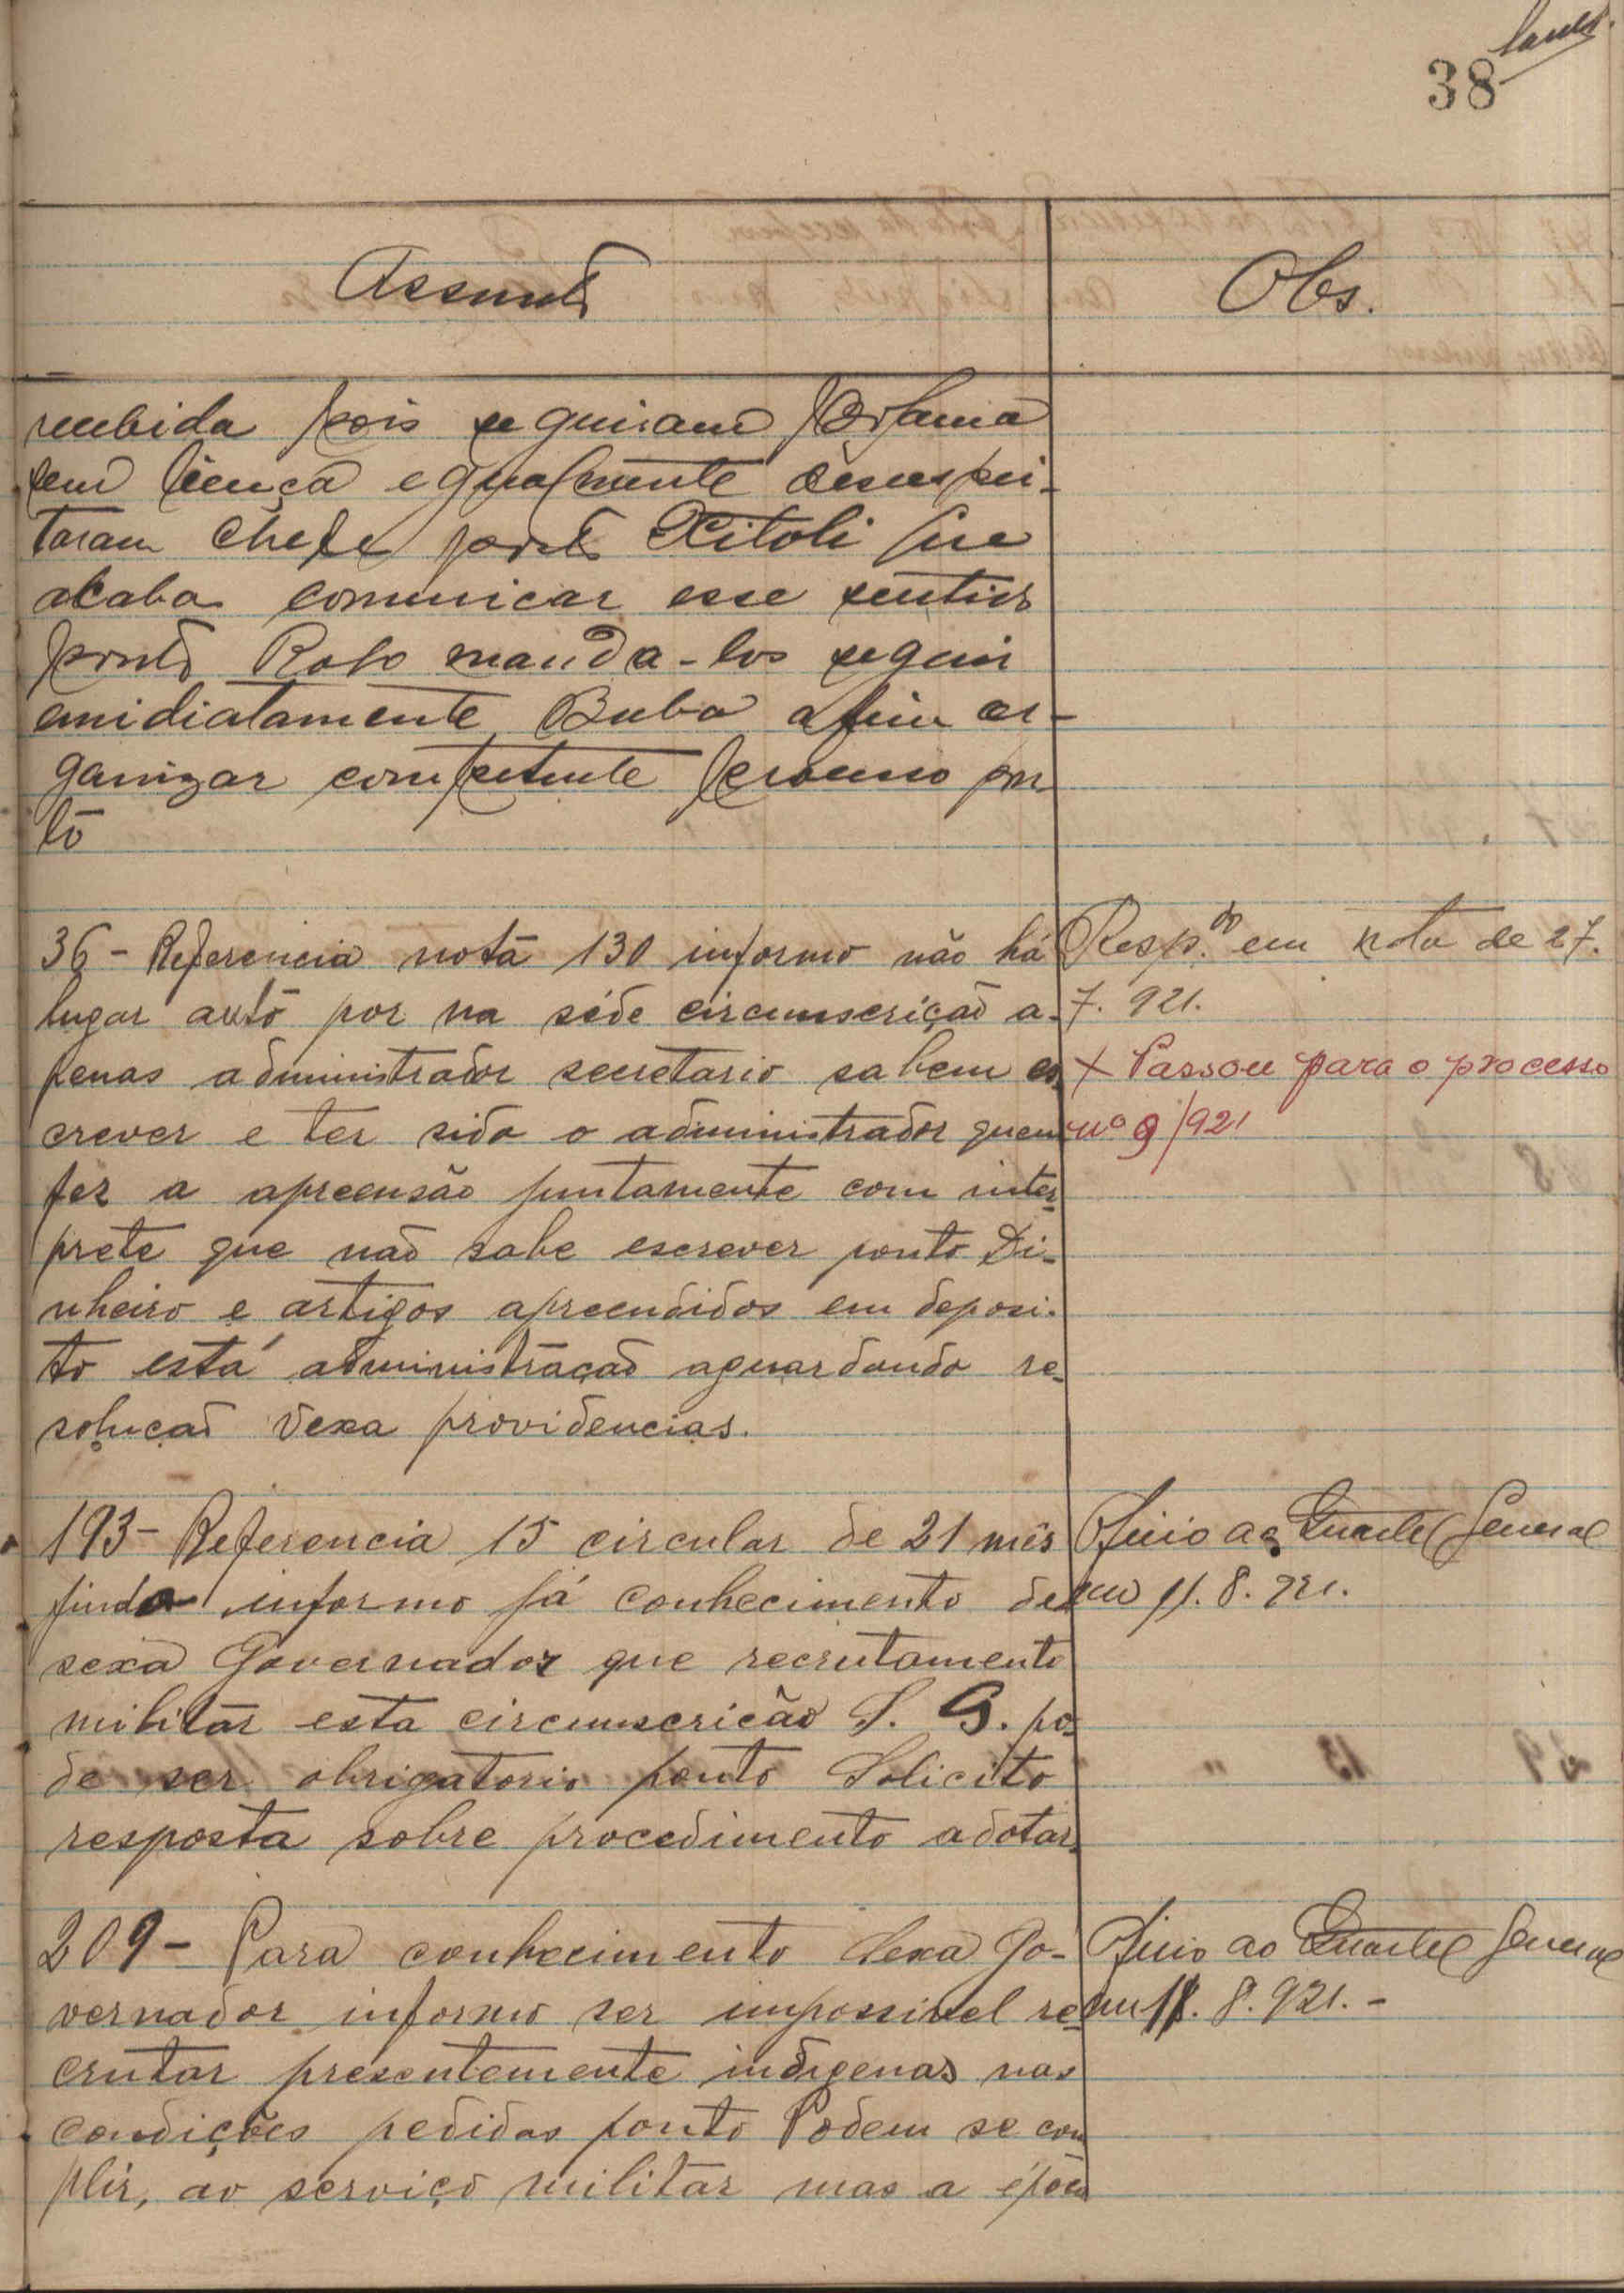 38
Assunto
Obs.
recebida pois seguiram Farim
sem licença egualmente desrespei-
taram chefe posto Xitoli que
acaba comunicar esse sentido
ponto Rogo manda-los seguir
emidiatamente Buba afim or-
ganizar competente processo pon
to
36 - Referencia nota 130 informo não há
lugar auto por na séde circumscrição a-
penas administrador secretario sabem es
crever e ter sido o administrador quem
fez a apreensão juntamente com inter-
prete que não sabe escrever ponto Di-
nheiro e artigos apreendidos em deposi-
to está administração aguardando re-
solução Vexa providencias.
Resp.do em nota de 27.
7. 921.
+ Passou para o processo
nº 9/921
193 - Referencia 15 circular de 21 mês
findo informo já conhecimento de
sexa Governador que recrutamento
militar esta circumscrição S. G. po-
de ser obrigatorio ponto Solicito
resposta sobre procedimento adotar.
Oficio ao Quartel General
em 11. 8. 921.
209 - Para conhecimento Sexa Go-
vernador informo ser impossivel re-
crutar presentemente indigenas nas
condições pedidas ponto Podem se com
plir, ao serviço militar mas a época
Oficio ao Quartel General
em 11. 8. 921. -